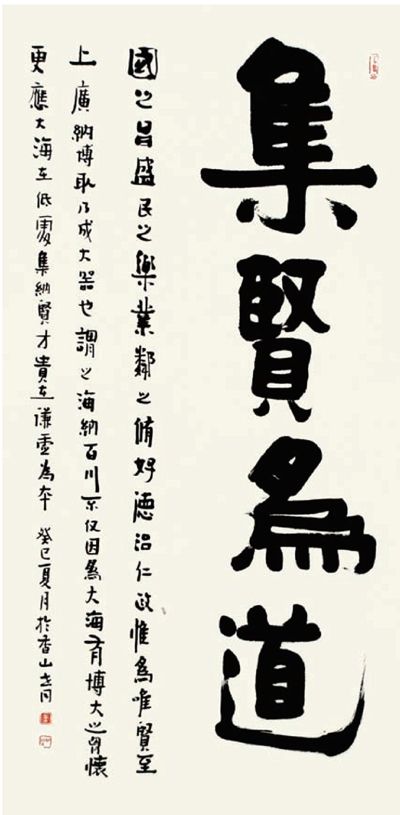 集賢為道
國之昌盛民之樂業鄰之脩好德治仁政惟為唯賢至
上廣納博取乃成大器也謂之海納百川不仅因為大海有博大之胷懷
更應大海在低處集納賢才貴在谦虛為本 癸巳夏月於香山